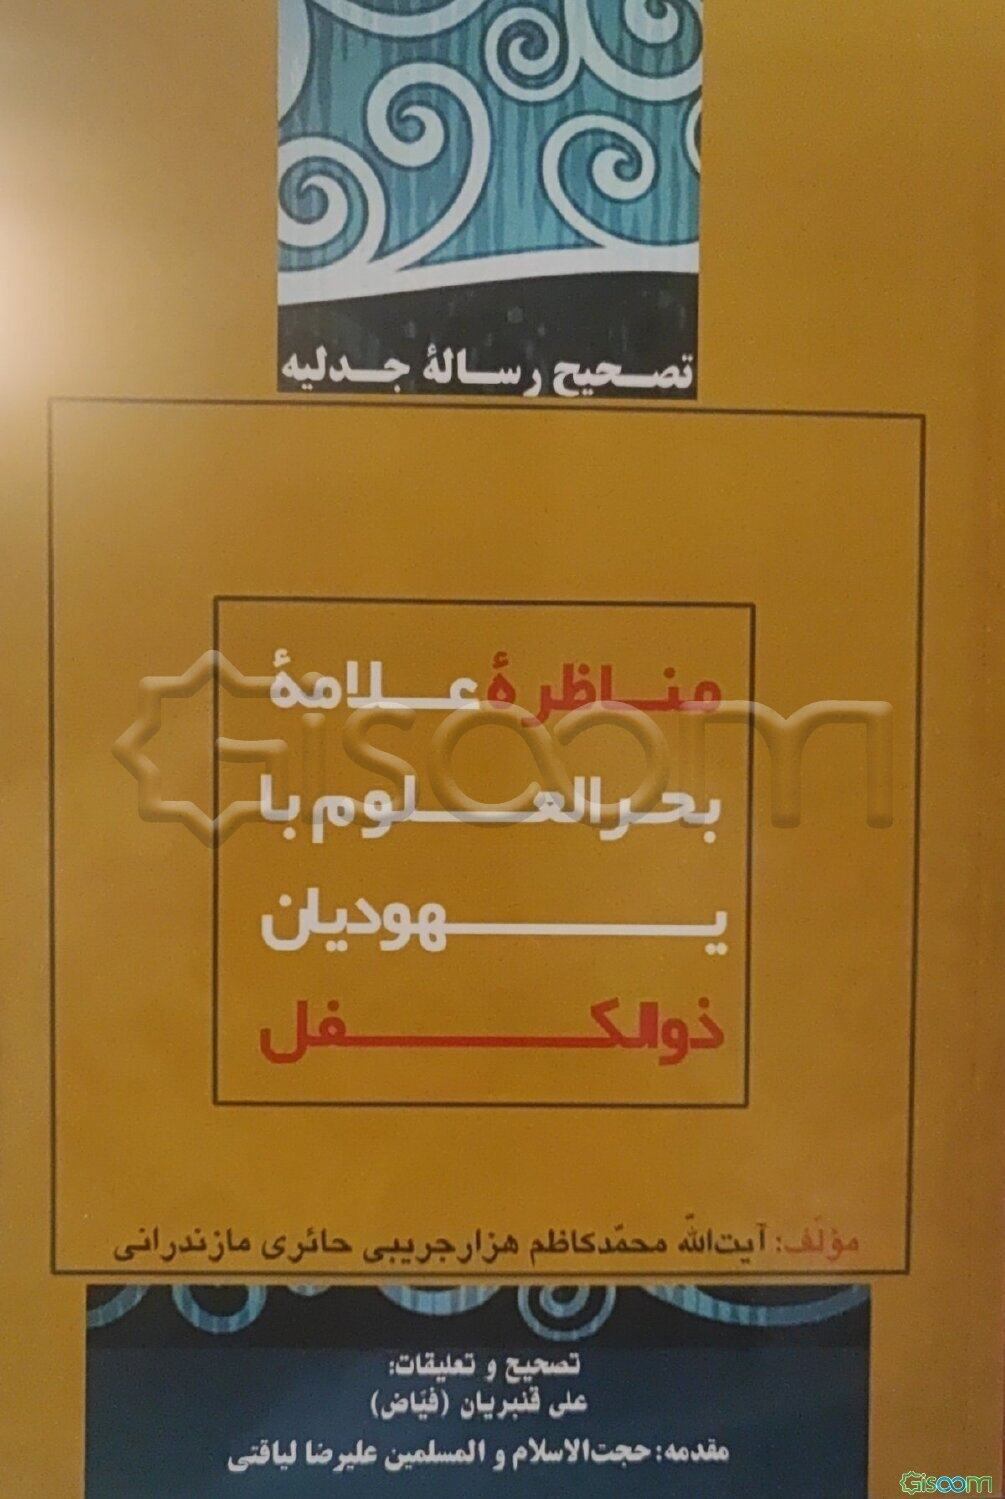 تصحیح رسالهٔ جدلیه
مناظرهٔ علامهٔ
بحرالعلوم با
یهودیان
ذوالکفل
مؤلّف: آیت‌اللّه محمّدکاظم هزارجریبی حائری مازندرانی
تصحیح و تعلیقات:
علی قنبریان (فیّاض)
مقدمه: حجت‌الاسلام و المسلمین علیرضا لیاقتی
Gisoom
Gisoom